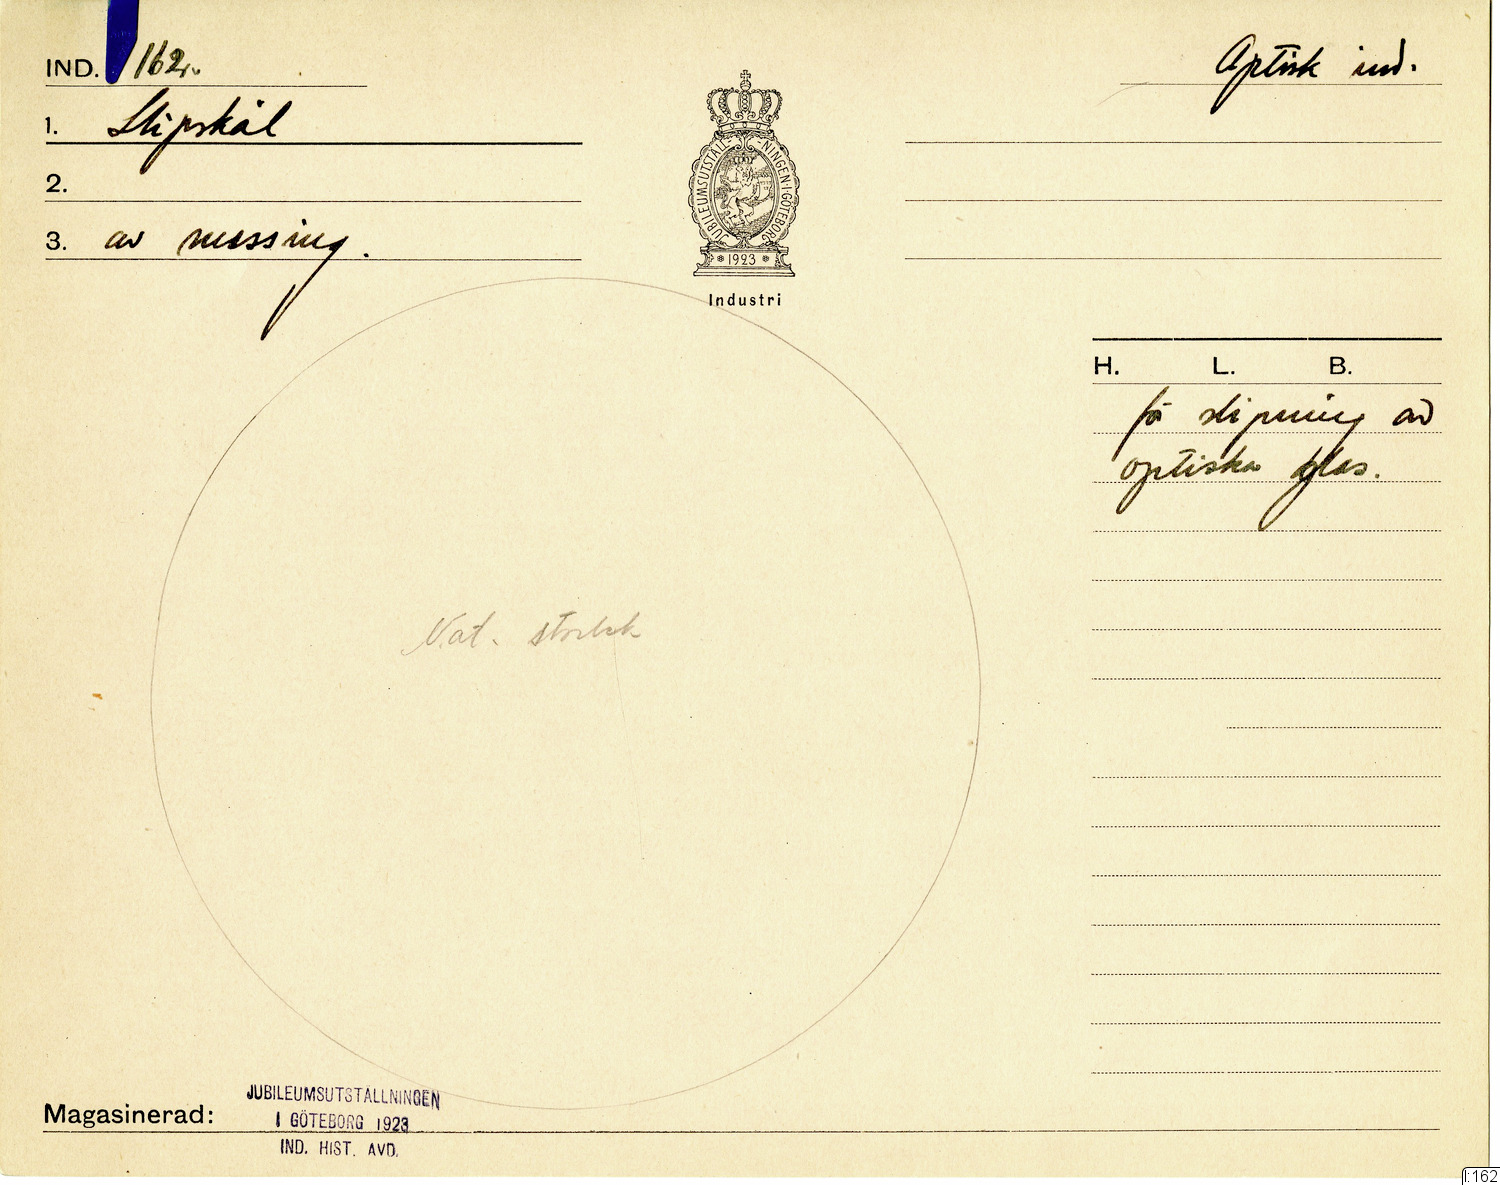 IND. 162.
Optisk ind.
1. Slipskål
2.
3. av messing.
JUBILEUMSUTSTÄLL-NINGEN·I·GÖTEBORG
1923
Industri
H. L. B.
för slipning av
optiska glas.
Nat. storlek
Magasinerad:
JUBILEUMSUTSTÄLLNINGEN
I GÖTEBORG 1923
IND. HIST. AVD.
I:162